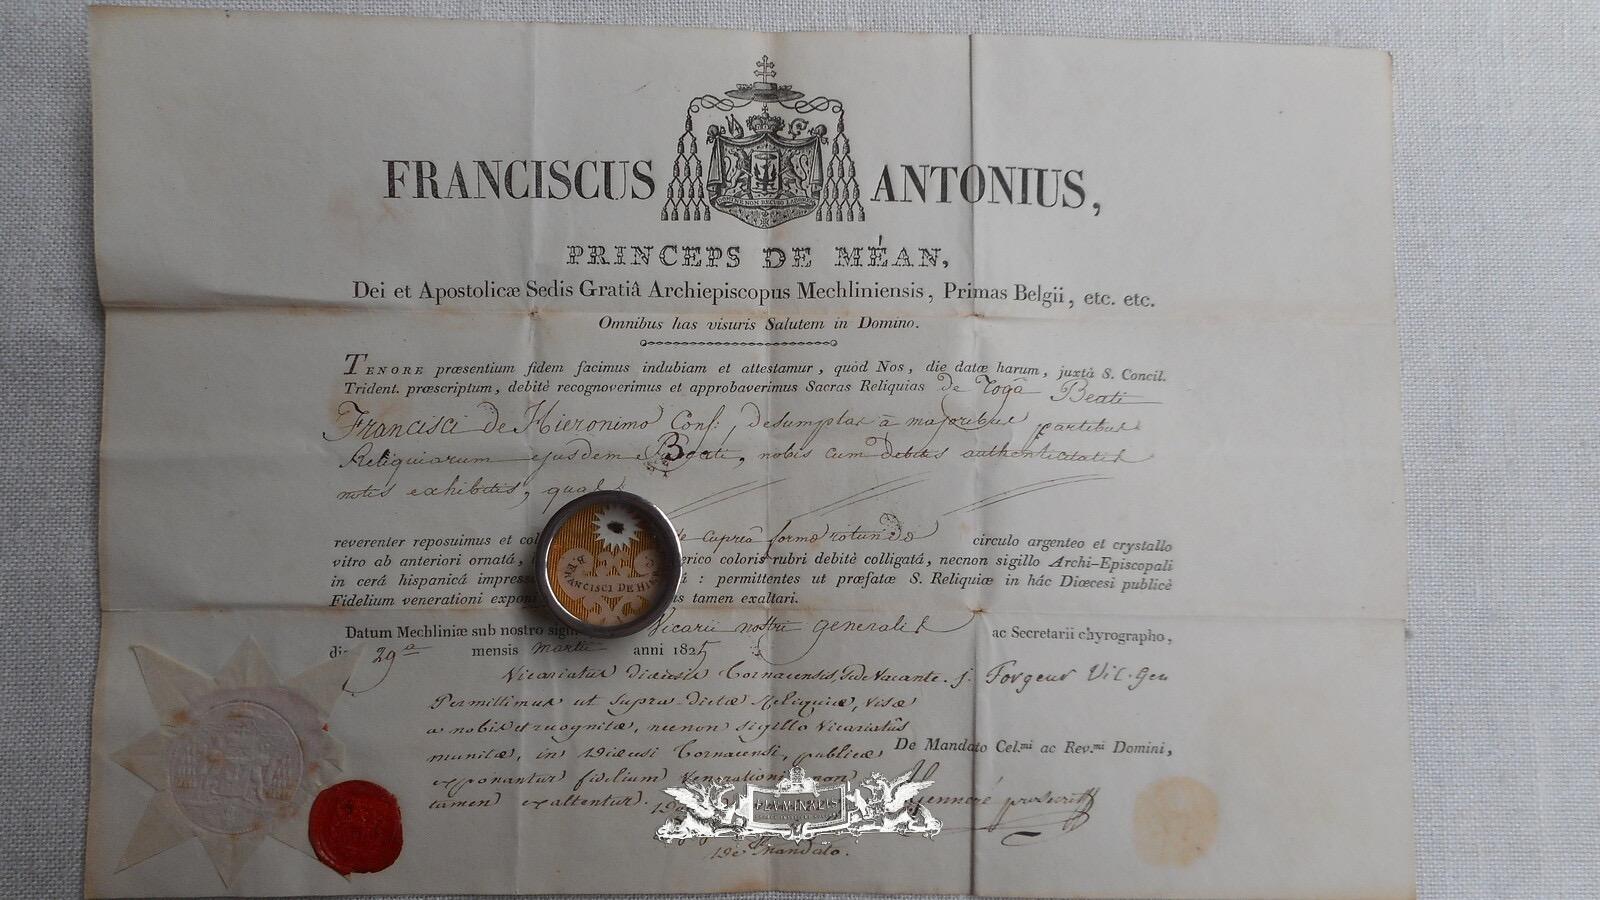 FRANCISCUS ANTONIUS,
PRINCEPS DE MÉAN,
Dei et Apostolicæ Sedis Gratiâ Archiepiscopus Mechliniensis, Primas Belgii, etc. etc.
Omnibus has visuris Salutem in Domino.
TENORE præsentium fidem facimus indubiam et attestamur, quòd Nos, die datæ harum, juxtà S. Concil.
Trident. præscriptum, debitè recognoverimus et approbaverimus Sacras Reliquias de Togâ Beati
Francisci de Hieronimo Conf:, desumptas à majoribus partibus
Reliquiarum ejusdem Beati, nobis cum debitis authenticitatis
notis exhibitis, quas
reverenter reposuimus et col cupreâ formæ rotundæ circulo argenteo et crystallo
vitro ab anteriori ornatá, erico coloris rubri debitè colligatá, necnon sigillo Archi-Episcopali
in cerá hispanicá impress : permittentes ut præfatæ S. Reliquiæ in hác Diœcesi publicè
Fidelium venerationi exponi s tamen exaltari.
B. FRANCISCI DE HIER
Datum Mechliniæ sub nostro sig Vicarii nostri generalis ac Secretarii chyrographo,
die 29ª mensis martii anni 1825
Vicariatus diœcesis Tornacensis, Sede Vacante. J. Forgeur Vic. Gen
Permittimus ut supra-dictæ Reliquiæ, visæ
a nobis et recognitæ, necnon sigillo Vicariatûs
munitæ, in Diœcesi Tornacensi, publicæ
De Mandato Cel.mi ac Rev.mi Domini,
exponantur fidelium Venerationi non
tamen exaltentur.
FLAMINALIS
De mandato.